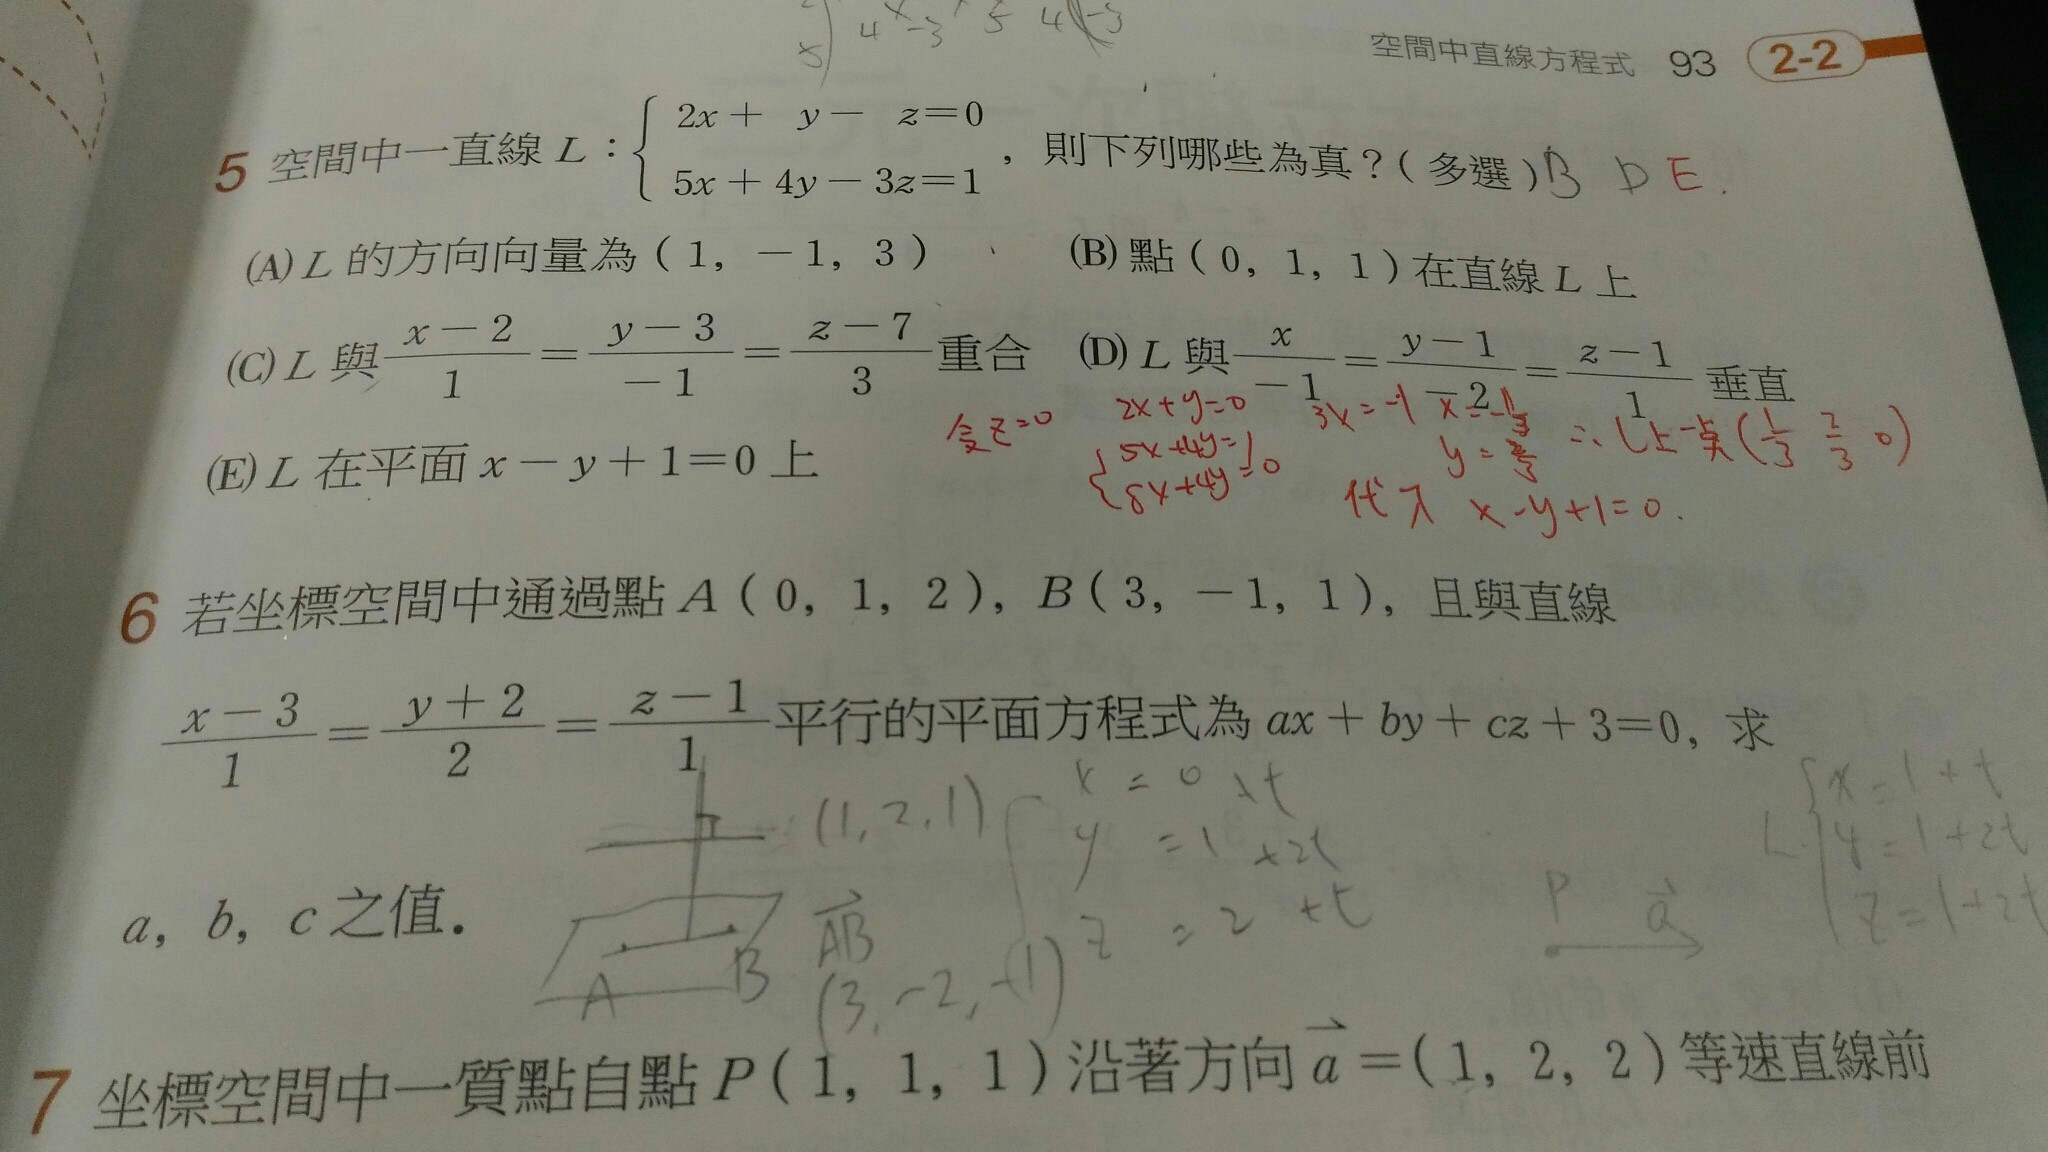 4 -3 5 4 -3
空間中直線方程式 93 2-2
5 空間中一直線 L：{ 2x + y - z = 0
5x + 4y - 3z = 1 ，則下列哪些為真？(多選) B D E.
(A) L 的方向向量為 (1, -1, 3) (B) 點 (0, 1, 1) 在直線 L 上
(C) L 與 (x-2)/1 = (y-3)/-1 = (z-7)/3 重合 (D) L 與 x/-1 = (y-1)/-2 = (z-1)/1 垂直
令 z=0 2x+y=0 3x=-1 x=-1/3
{ 5x+4y=1 y=2/3 ∴ L上一点 (1/3 2/3 0)
8x+4y=0
(E) L 在平面 x - y + 1 = 0 上
代入 x-y+1=0.
6 若坐標空間中通過點 A (0, 1, 2), B (3, -1, 1), 且與直線
(x-3)/1 = (y+2)/2 = (z-1)/1 平行的平面方程式為 ax + by + cz + 3 = 0, 求
a, b, c 之值.
(1, 2, 1)
x = 0 + t
y = 1 + 2t
z = 2 + t
A B
AB
(3, -2, -1)
P a
L { x = 1 + t
y = 1 + 2t
z = 1 + 2t
7 坐標空間中一質點自點 P (1, 1, 1) 沿著方向 a = (1, 2, 2) 等速直線前